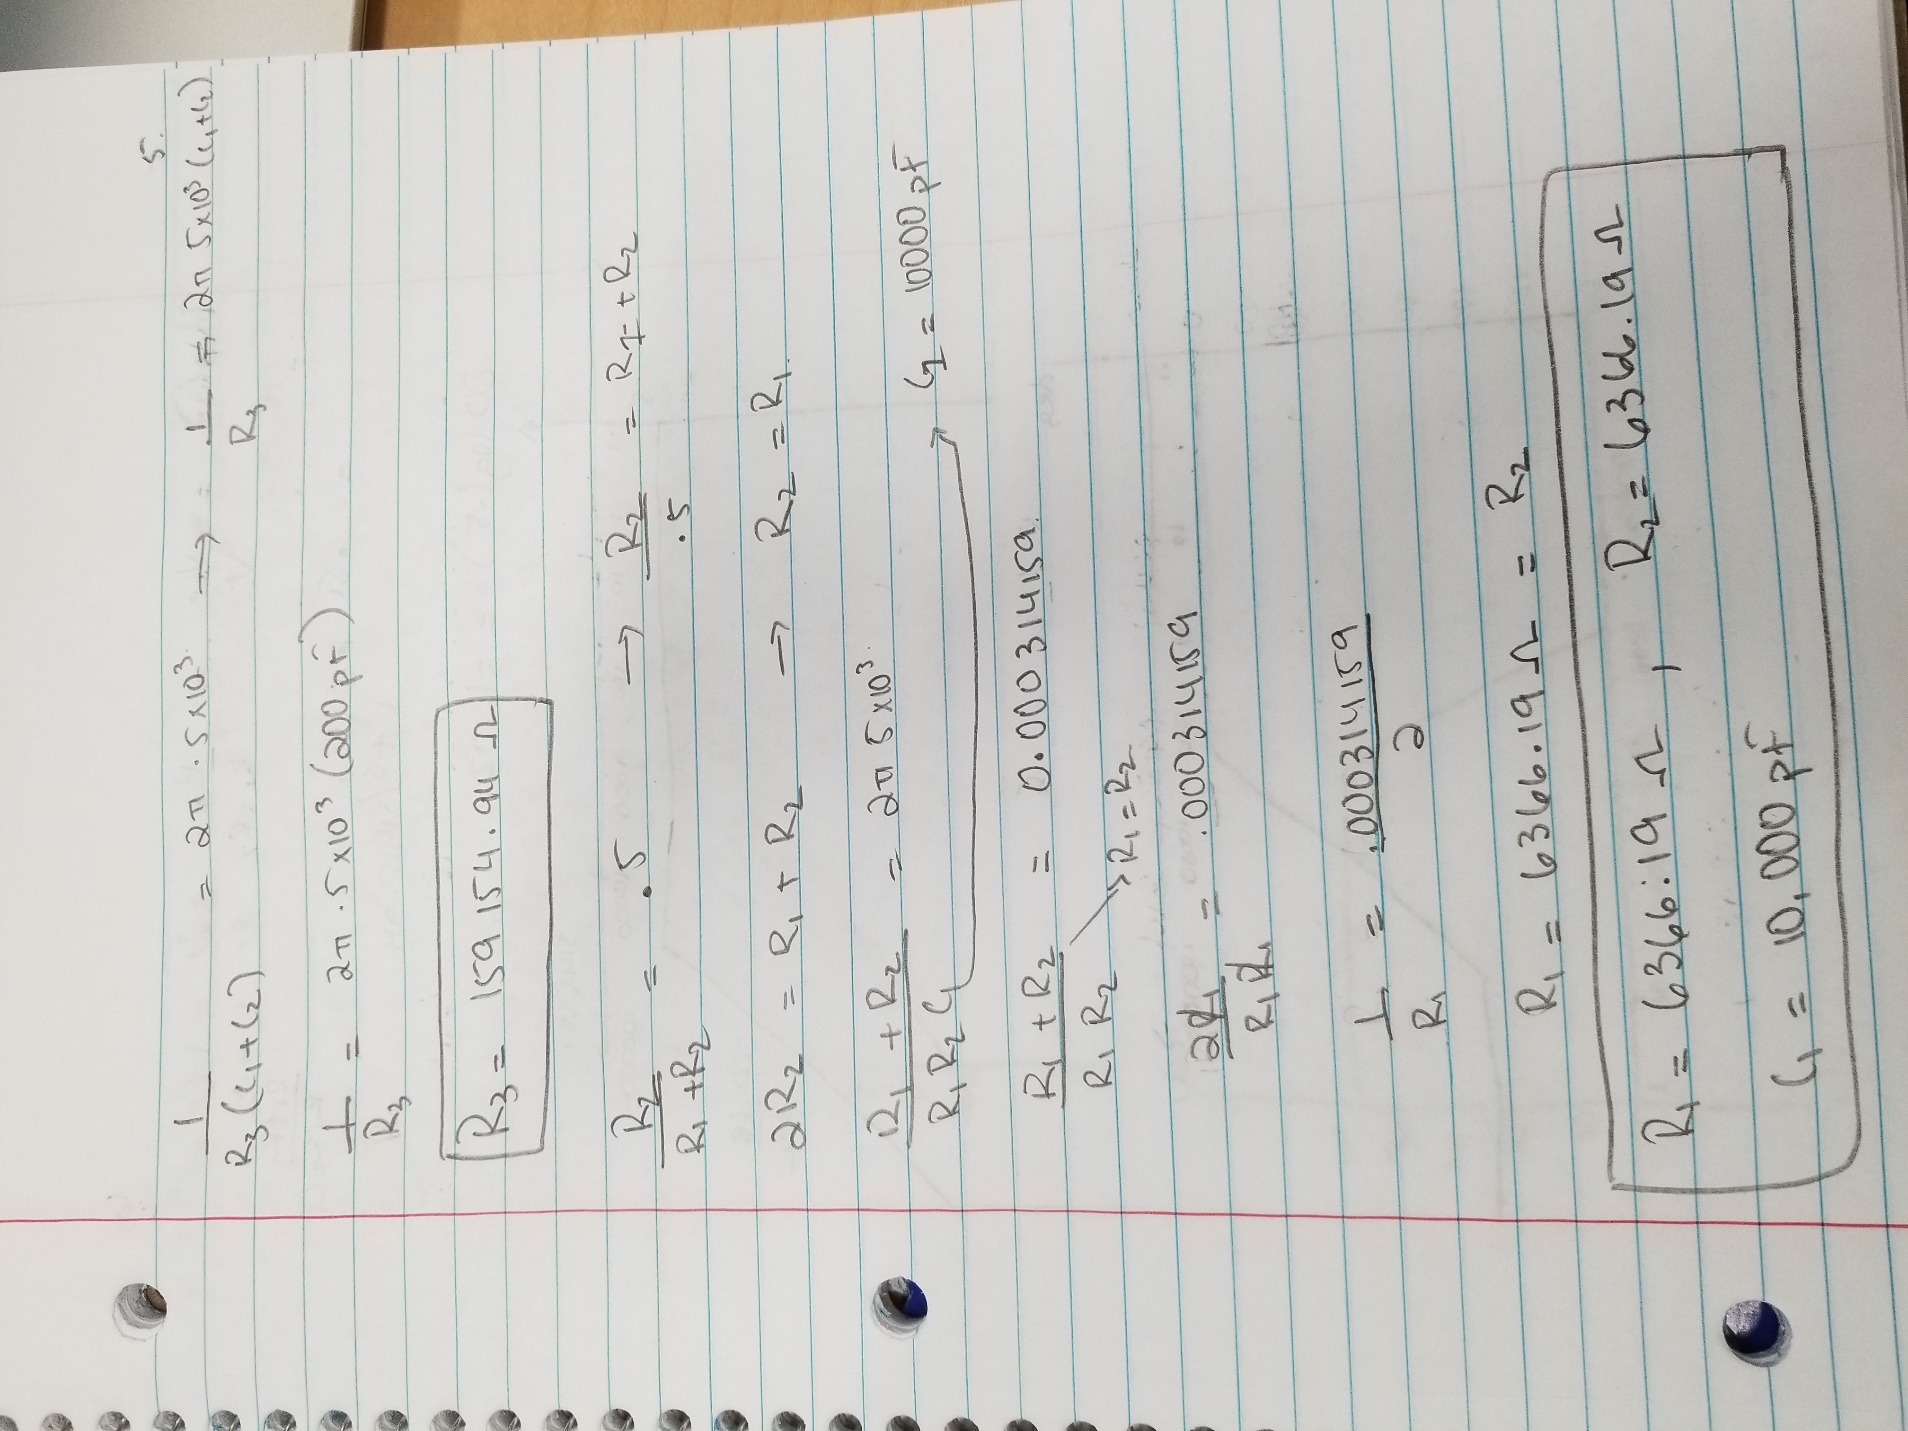 5.
1/(R₃(C₁+C₂)) = 2π·5×10³ → 1/R₃ = 2π 5×10³(C₁+C₂)
1/R₃ = 2π·5×10³(200pF)
R₃ = 159154.94 Ω
R₂/(R₁+R₂) = .5 → R₂/.5 = R₁+R₂
2R₂ = R₁+R₂ → R₂ = R₁
(R₁+R₂)/(R₁R₂C₁) = 2π 5×10³ C₁ = 10000pF
(R₁+R₂)/(R₁R₂) = 0.000314159
→ R₁=R₂
2R₁/(R₁R₁) = .000314159
1/R₁ = .000314159/2
R₁ = 6366.19 Ω = R₂
R₁ = 6366.19 Ω , R₂ = 6366.19 Ω
C₁ = 10,000 pF